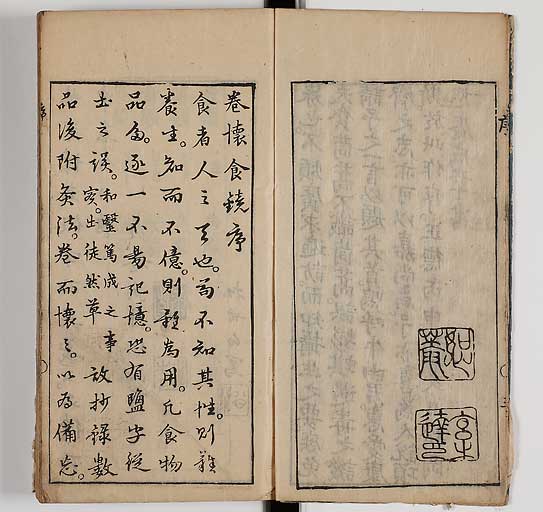 序
卷懷食鏡序
食者人之天也。為不知其性。則難
養生。知而不億。則難為用。凡食物
品多。逐一不易記憶。恐有鹽字從
土之誤。和醫篤成之事出徒然草故抄錄數
品後附灸法。卷而懷之。以為備忘。